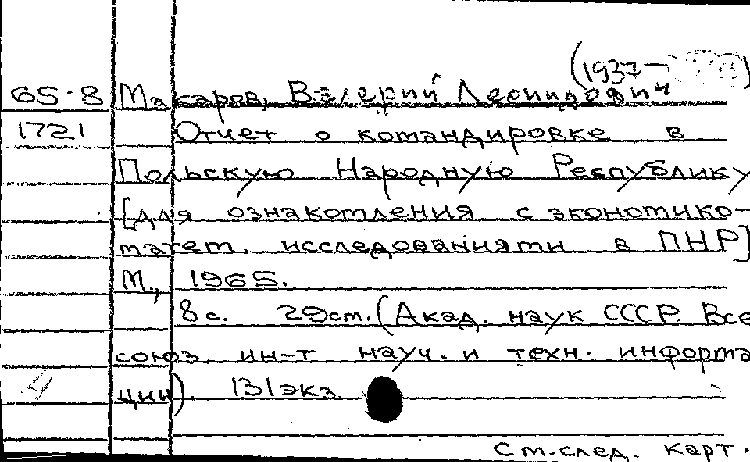 (1937-
65-8 Макаров, Валерий Леонидович
1721 Отчет о командировке в
Польскую Народную Республику
[для ознакомления с экономико-
матем. исследованиями в ПНР]
М., 1965.
8 с. 29 см. (Акад. наук СССР. Все
союз. ин-т науч. и техн. информа
ции). 131 экз.
См. след. карт.